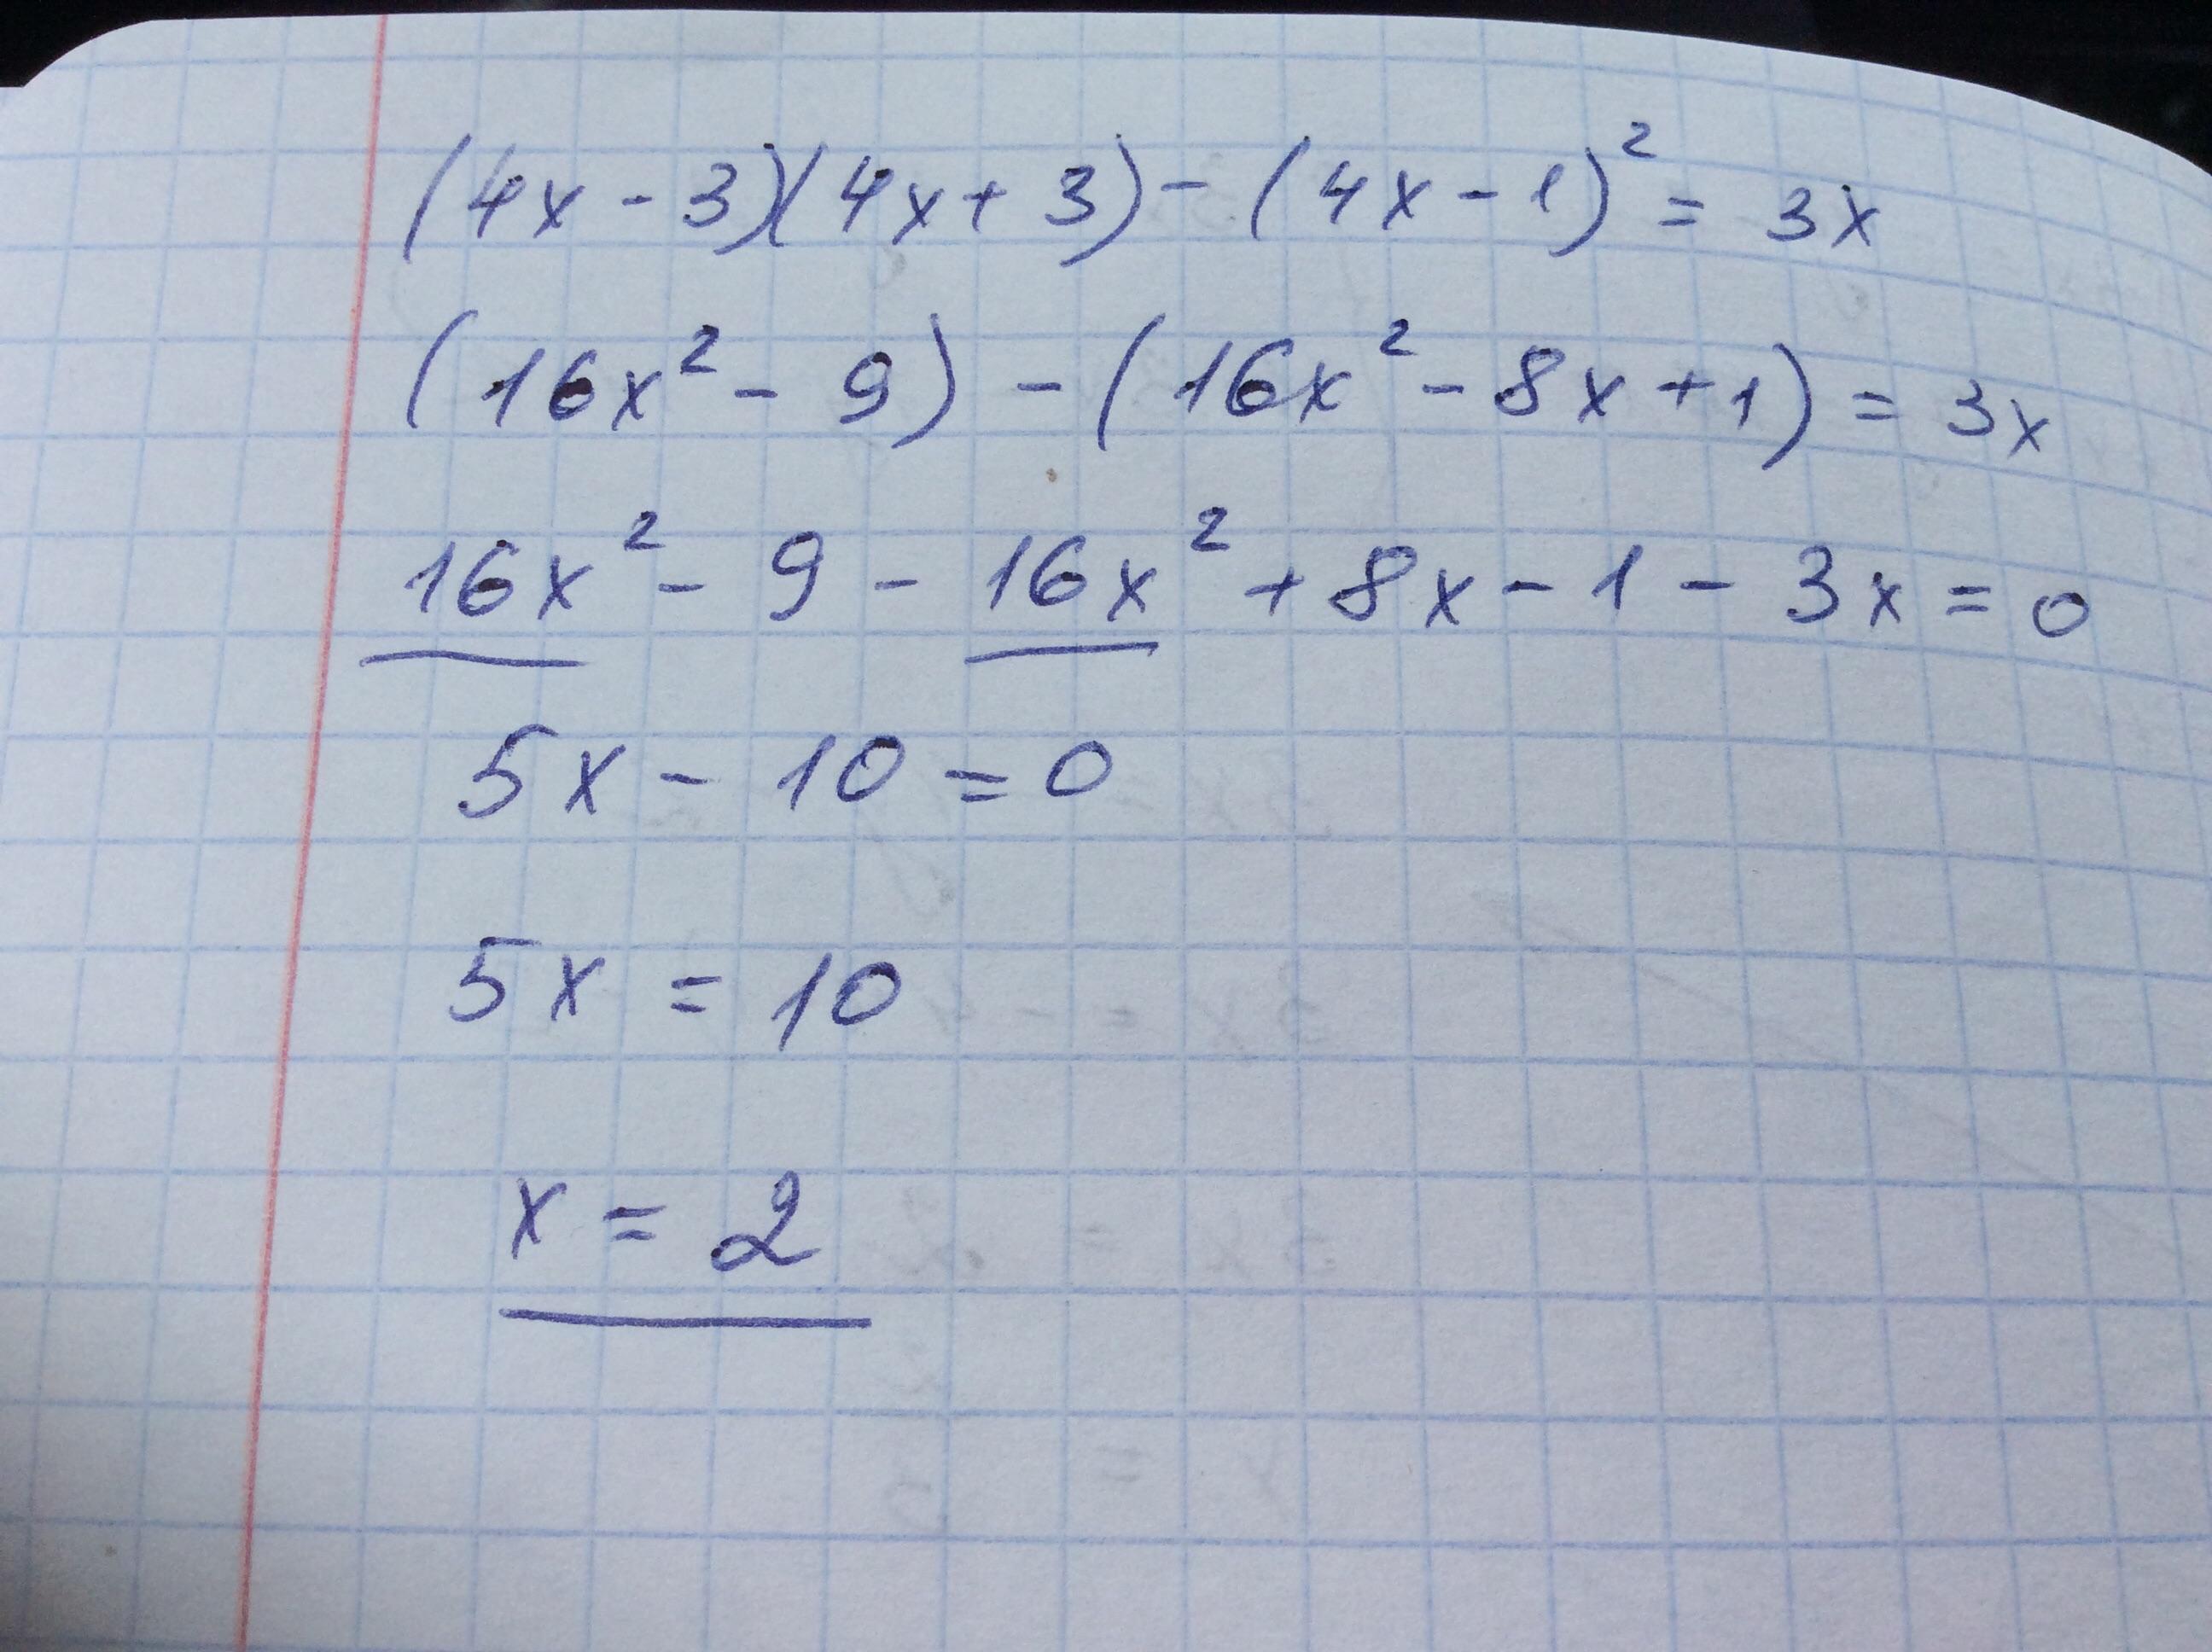 (4x - 3)(4x + 3) - (4x - 1)² = 3x
(16x² - 9) - (16x² - 8x + 1) = 3x
16x² - 9 - 16x² + 8x - 1 - 3x = 0
5x - 10 = 0
5x = 10
x = 2